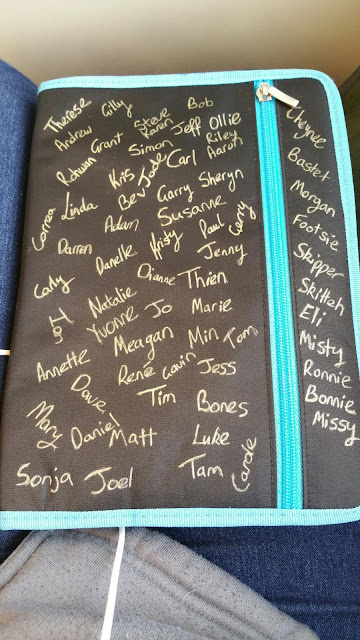 Therese
Gilly
Bob
Andrew
Grant
Steve
Karen
Jeff
Ollie
Simon
Riley
Aaron
Rohwan
Kris
Jode
Carl
Correa
Linda
Bev
Garry
Sheryn
Adam
Susanne
Darren
Danelle
Kristy
Paul
Gerry
Jenny
Carly
Dianne
Thien
Natalie
Yvonne
Jo
Marie
Meagan
Min
Tom
Annette
Renie
Gavin
Jess
Dave
Tim
Bones
Mary
Daniel
Matt
Luke
Sonja
Joel
Tam
Carole
Cheynee
Basket
Morgan
Footsie
Skipper
Skitteh
Eli
Misty
Ronnie
Bonnie
Missy